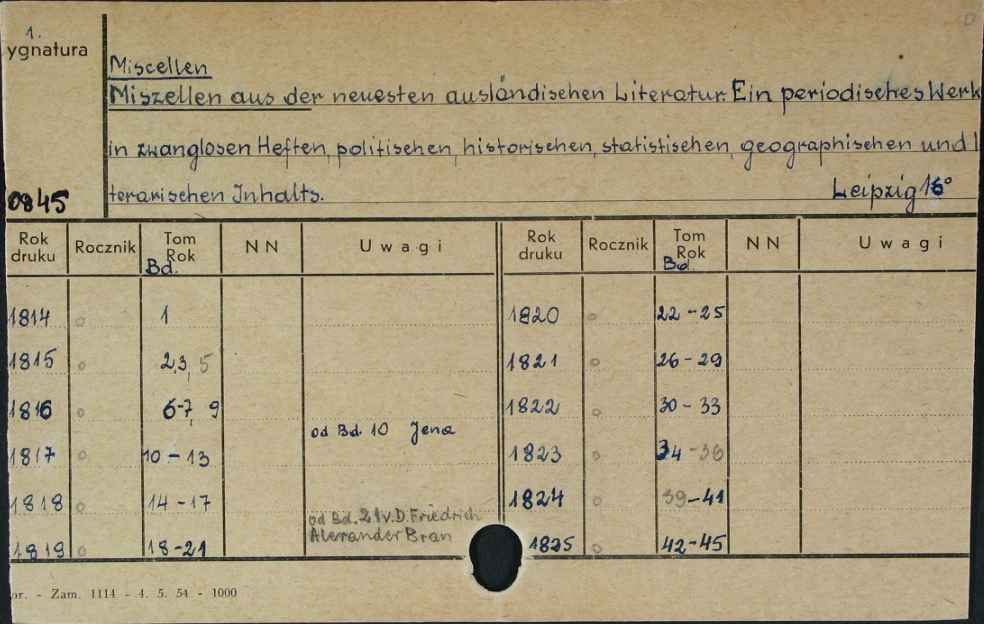 1.
ygnatura
0845
Miscellen
Miszellen aus der neuesten ausländischen Literatur. Ein periodisches Werk
in zwanglosen Heften, politischen, historischen, statistischen, geographischen und l
terarischen Inhalts. Leipzig 16°
Rok druku Rocznik Tom Rok Bd. NN Uwagi Rok druku Rocznik Tom Rok Bd. NN Uwagi
1814 o 1 1820 o 22-25
1815 o 2,3, 5 1821 o 26-29
1816 o 6-7, 9 1822 o 30-33
od Bd. 10 Jena
1817 o 10-13 1823 o 34-36
1818 o 14-17 1824 o 39-41
od Bd. 21 v. D. Friedrich
Alexander Bran
1819 o 18-21 1825 o 42-45
or. - Zam. 1114 - 4. 5. 54 - 1000